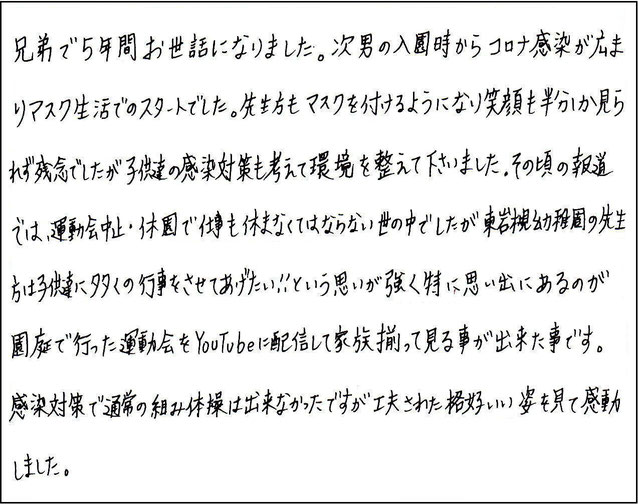 兄弟で5年間お世話になりました。次男の入園時からコロナ感染が広ま
りマスク生活でのスタートでした。先生方もマスクを付けるようになり笑顔も半分しか見ら
れず残念でしたが子供達の感染対策も考えて環境を整えて下さいました。その頃の報道
では、運動会中止・休園で仕事も休まなくてはならない世の中でしたが東岩槻幼稚園の先生
方は子供達に多くの行事をさせてあげたい!!という思いが強く特に思い出にあるのが
園庭で行った運動会をYouTubeに配信して家族揃って見る事が出来た事です。
感染対策で通常の組み体操は出来なかったですが工夫された格好いい姿を見て感動
しました。